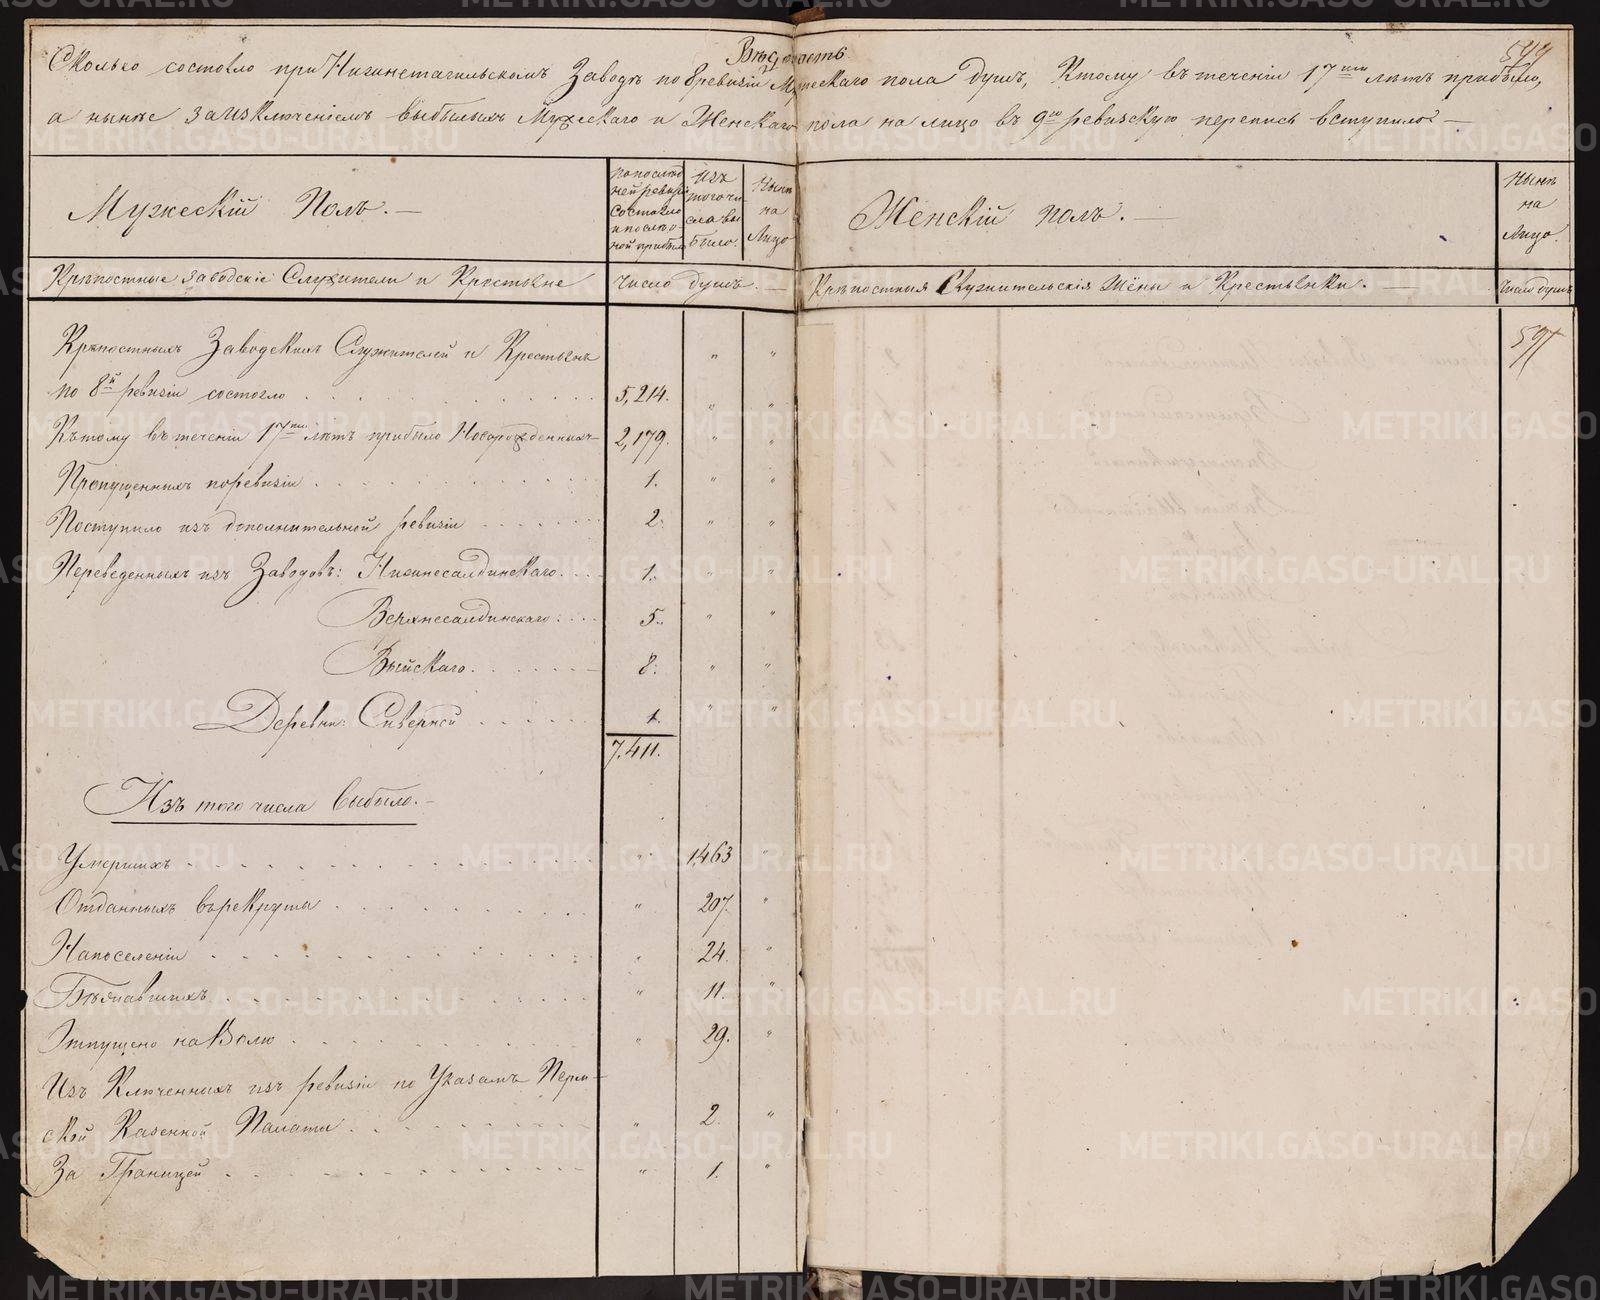 Вѣдомость
599
Сколько состояло при Нижнетагильскомъ Заводѣ по 8 ревизіи Мужескаго пола Душъ, Ктому въ теченіи 17ти лѣтъ прибыло,
а нынѣ заизключеніемъ выбылыхъ Мужескаго и Женскаго пола на лицо въ 9ю ревизскую перепись вступило? —
Мужескій Полъ. —
по послѣд
ней ревизіи
состояло
и послѣ
ной прибыло
Изъ
того чи
сла вы
было.
Нынѣ
на
Лицо
Женскій полъ. —
Нынѣ
на
Лицо.
Крѣпостные заводскіе Служители и Крестьяне
Число душъ. —
Крѣпостныя Служительскія Жёны и Крестьянки. —
Число душъ
Крѣпостныхъ Заводскихъ Служителей и Крестьянъ " "
597
по 8й ревизіи состояло 5,214. " "
Къ тому въ теченіи 17ти лѣтъ прибыло Новорожденныхъ 2,179. " "
Пропущенныхъ по ревизіи 1. " "
Поступило изъ дополнительной ревизіи 2. " "
Переведенныхъ изъ Заводовъ: Нижнесалдинскаго 1. " "
Верхнесалдинскаго: 5. " "
Выйскаго 8. " "
Деревни: Сиверной 1. " "
7,411.
Изъ того числа выбыло. —
Умершихъ " 1463 "
Отданныхъ въ рекруты " 207. "
На поселеніи " 24. "
Бѣжавшихъ " 11. "
Отпущено на Волю " 29. "
Изъ Ключенныхъ изъ ревизіи по Указамъ Перм-
ской Казенной Палаты " 2. "
За Границей " 1. "
METRIKI.GASO-URAL.RU